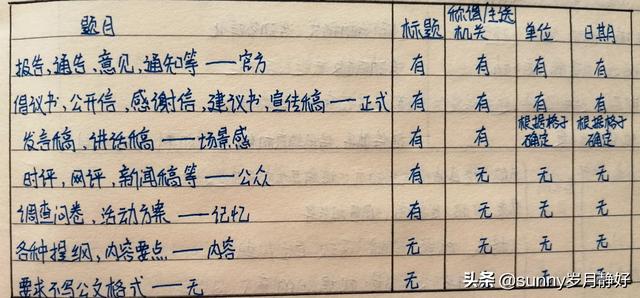 题目 标题 称谓/主送机关 单位 日期
报告、通告、意见、通知等——官方 有 有 有 有
倡议书、公开信、感谢信、建议书、宣传稿——正式 有 有 有 有
发言稿、讲话稿——场景感 有 有 根据格子确定 根据格子确定
时评、网评、新闻稿等——公众 有 无 无 无
调查问卷、活动方案——记忆 有 无 无 无
各种提纲、内容要点——内容 无 无 无 无
要求不写公文格式——无 无 无 无 无
头条 @sunny岁月静好